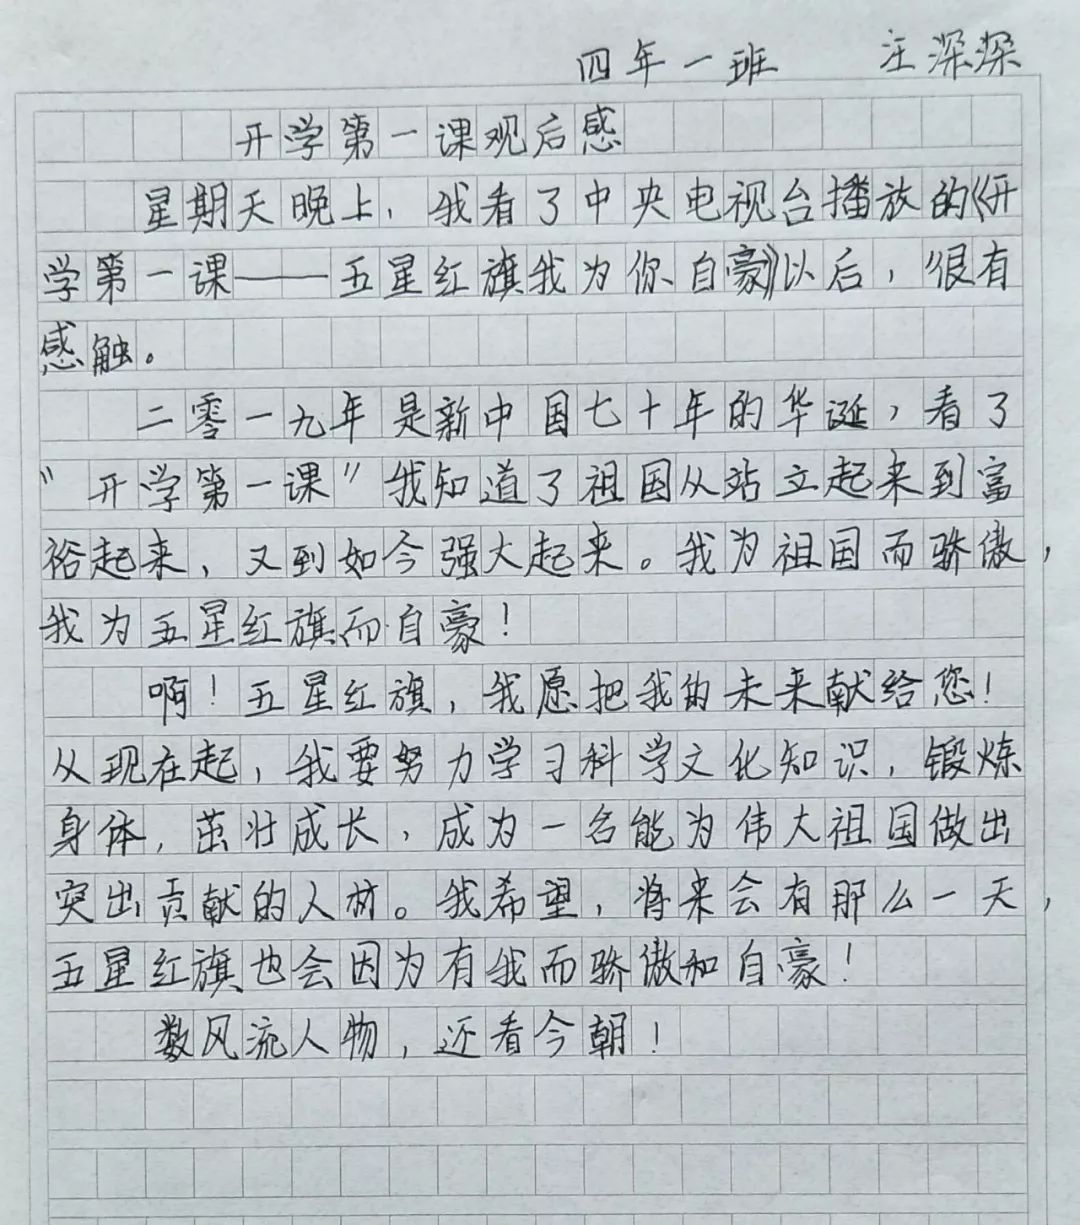 四年一班 汪深深
开学第一课观后感
星期天晚上，我看了中央电视台播放的《开
学第一课——五星红旗我为你自豪》以后，很有
感触。
二零一九年是新中国七十年的华诞，看了
"开学第一课"我知道了祖国从站立起来到富
裕起来，又到如今强大起来。我为祖国而骄傲，
我为五星红旗而自豪！
啊！五星红旗，我愿把我的未来献给您！
从现在起，我要努力学习科学文化知识，锻炼
身体，茁壮成长，成为一名能为伟大祖国做出
突出贡献的人材。我希望，将来会有那么一天，
五星红旗也会因为有我而骄傲和自豪！
数风流人物，还看今朝！